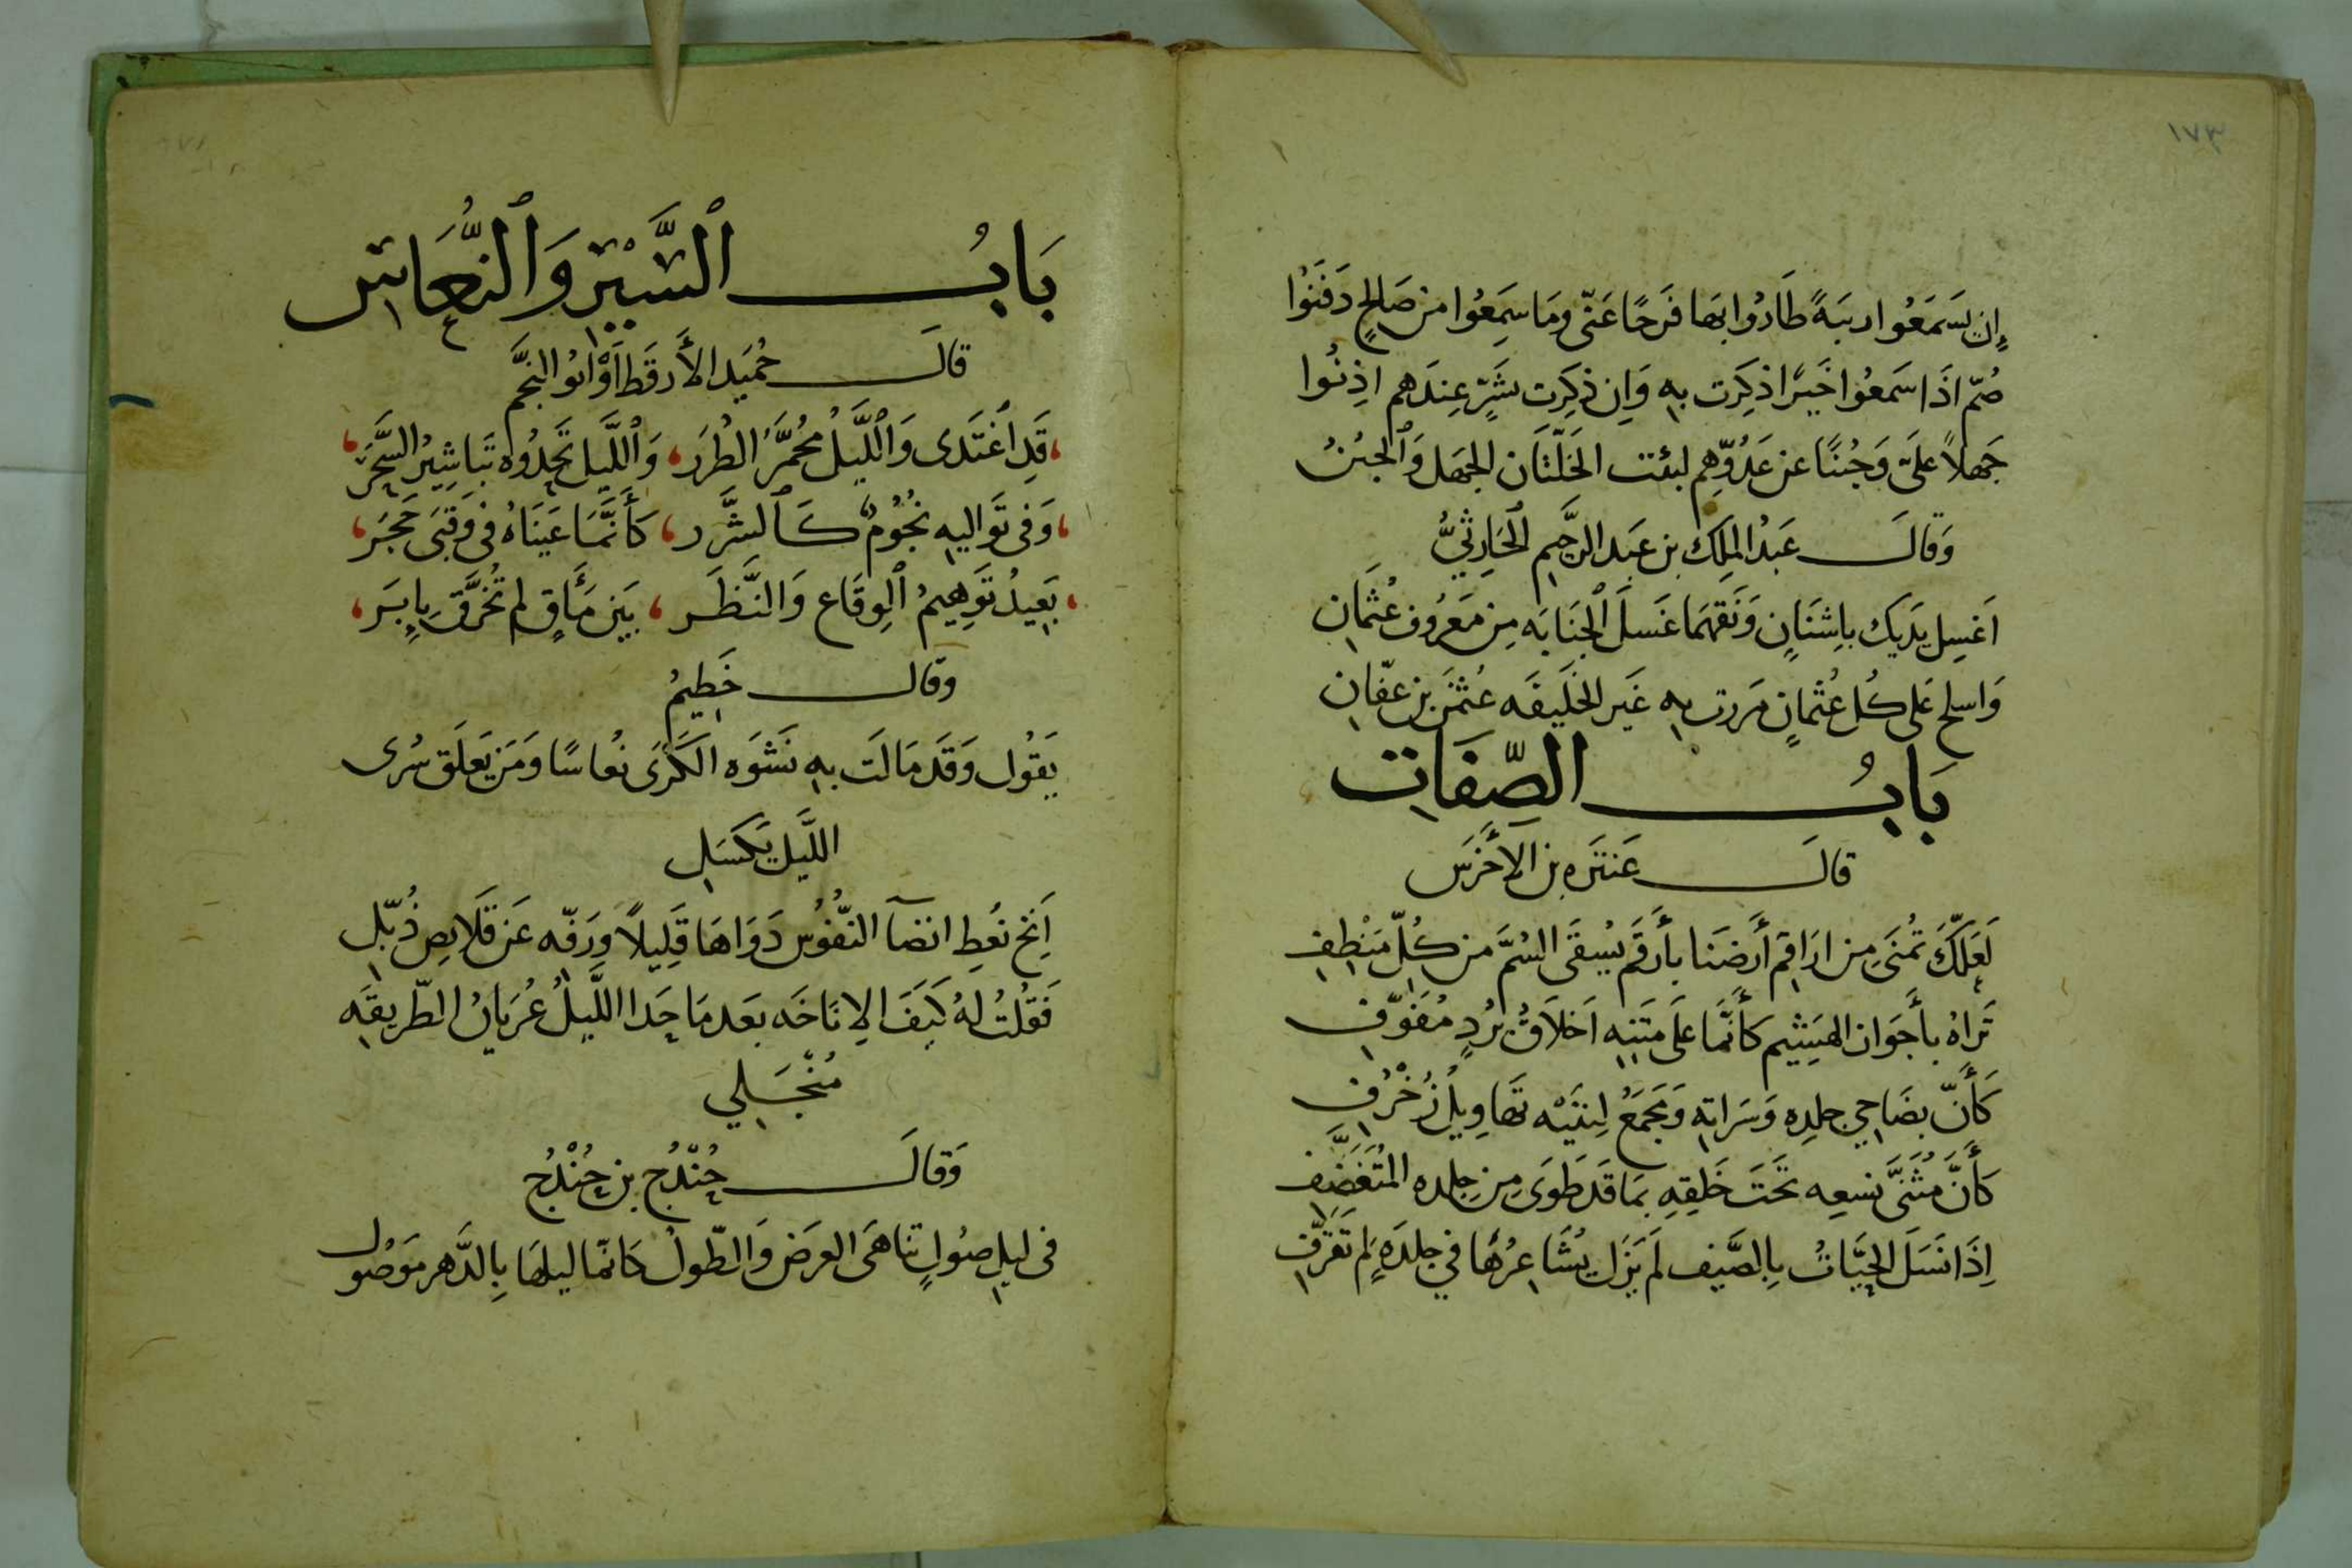 ١٧٣
إِن يَسمَعُوا ريبَةً طَارُوا بِهَا فَرَحًا عَنّى وَمَا سَمِعُوا من صَالِحٍ دَفَنُوا
صُمّ اذَا سَمعُوا خَيرًا ذكِرَت بهِ وَإِن ذكِرَت بشَرٍّ عِندَهم اذِنُوا
جَهلاً عَلىَّ وَجُبنًا عن عَدُوِّهِم لبئت الخَلّتَان الجَهل وَالجبُنُ
وَقالَ عَبدُ المَلِك بن عَبد الرَّحيِم الحَارِثيُّ
اَغسِل يَدَيك باِشنَانٍ وَنَقهمَا غَسلَ الجَنَابَه مِن مَعرُوف عُثمَانِ
وَاسلح عَلى كُل عُثمانٍ مَررت بهِ غَير الخَليفَه عُثمنَ بن عفّانِ
بَابُ الصِّفَاتِ
قالَ عَنتَره بن الأَخرَس
لَعَلّكَ تُمنَى مِن ارَاقِم أَرضَنا بأَرقَم يُسقَى السُمَّ من كُلّ مَنْطِفِ
تَراهُ بأَجوَان الهَشِيم كأَنَّما عَلَى مَتنِهِ اَخلَاقُ بُردٍ مُفَوّفِ
كَأَنّ بضَاحِي جلدِه وَسَراتِهِ وَمَجمَعُ لِيتَيْه تَهَاوِيلُ زُخْرُفِ
كَأَنَّ مُثَنَّى نسعِه تَحتَ خَلقِهِ بمَا قَد طَوَى مِن جِلدِه المُتَغَضِّفِ
إِذَا نَسَلَ الحَيَّاتُ بِالصَّيفِ لَم يَزَل يُشَاعِرُهَا في جلدَهٍ لم تَقَرَّفِ
بَابُ السَّيْرِ وَالنُّعَاسِ
قالَ حُمَيد الأَرقَط أَوْ ابُو النَّجم
قَد اغتَدى وَاللَّيلُ مُحمَرُّ الطُرَر، وَاللَّيل تَحِدُوه تَبَاشِيرُ السَّحَر
وَفى تَواليهِ نجُومٌ كَالشَّرَر، كَأَنَّمَا عَينَاهُ فى وَقبَى حَجَر
بَعِيدُ تَوهِيمُ الوِقَاع وَالنَّظَر، بَين مَأَقٍ لم تُخَرَّق بِاِبَر
وقال خَطِيمُ
يَقُول وَقَد مَالَت بهِ نَشوَه الكَرَى نُعاسًا وَمَن يَعلَق سُرى
اللَّيل يَكسَلِ
اَنِخ نعُطِ انضآ النُّفُوس دَوَاهَا قَليِلاً وَرَفّه عَن قَلَايصٍ ذُبّلِ
فَقلُتُ لهُ كَيَفَ الإنَاخَه بَعد مَا حَدا اللَّيلُ عُريَانُ الطّريقَه
مُنْجَلِي
وَقالَ حُنْدُج بن حُنْدُج
فى ليلِ صُولٍ تناهَى العرَض وَالطّولُ كانّما ليلهَا بِالدَّهر مَوصُول